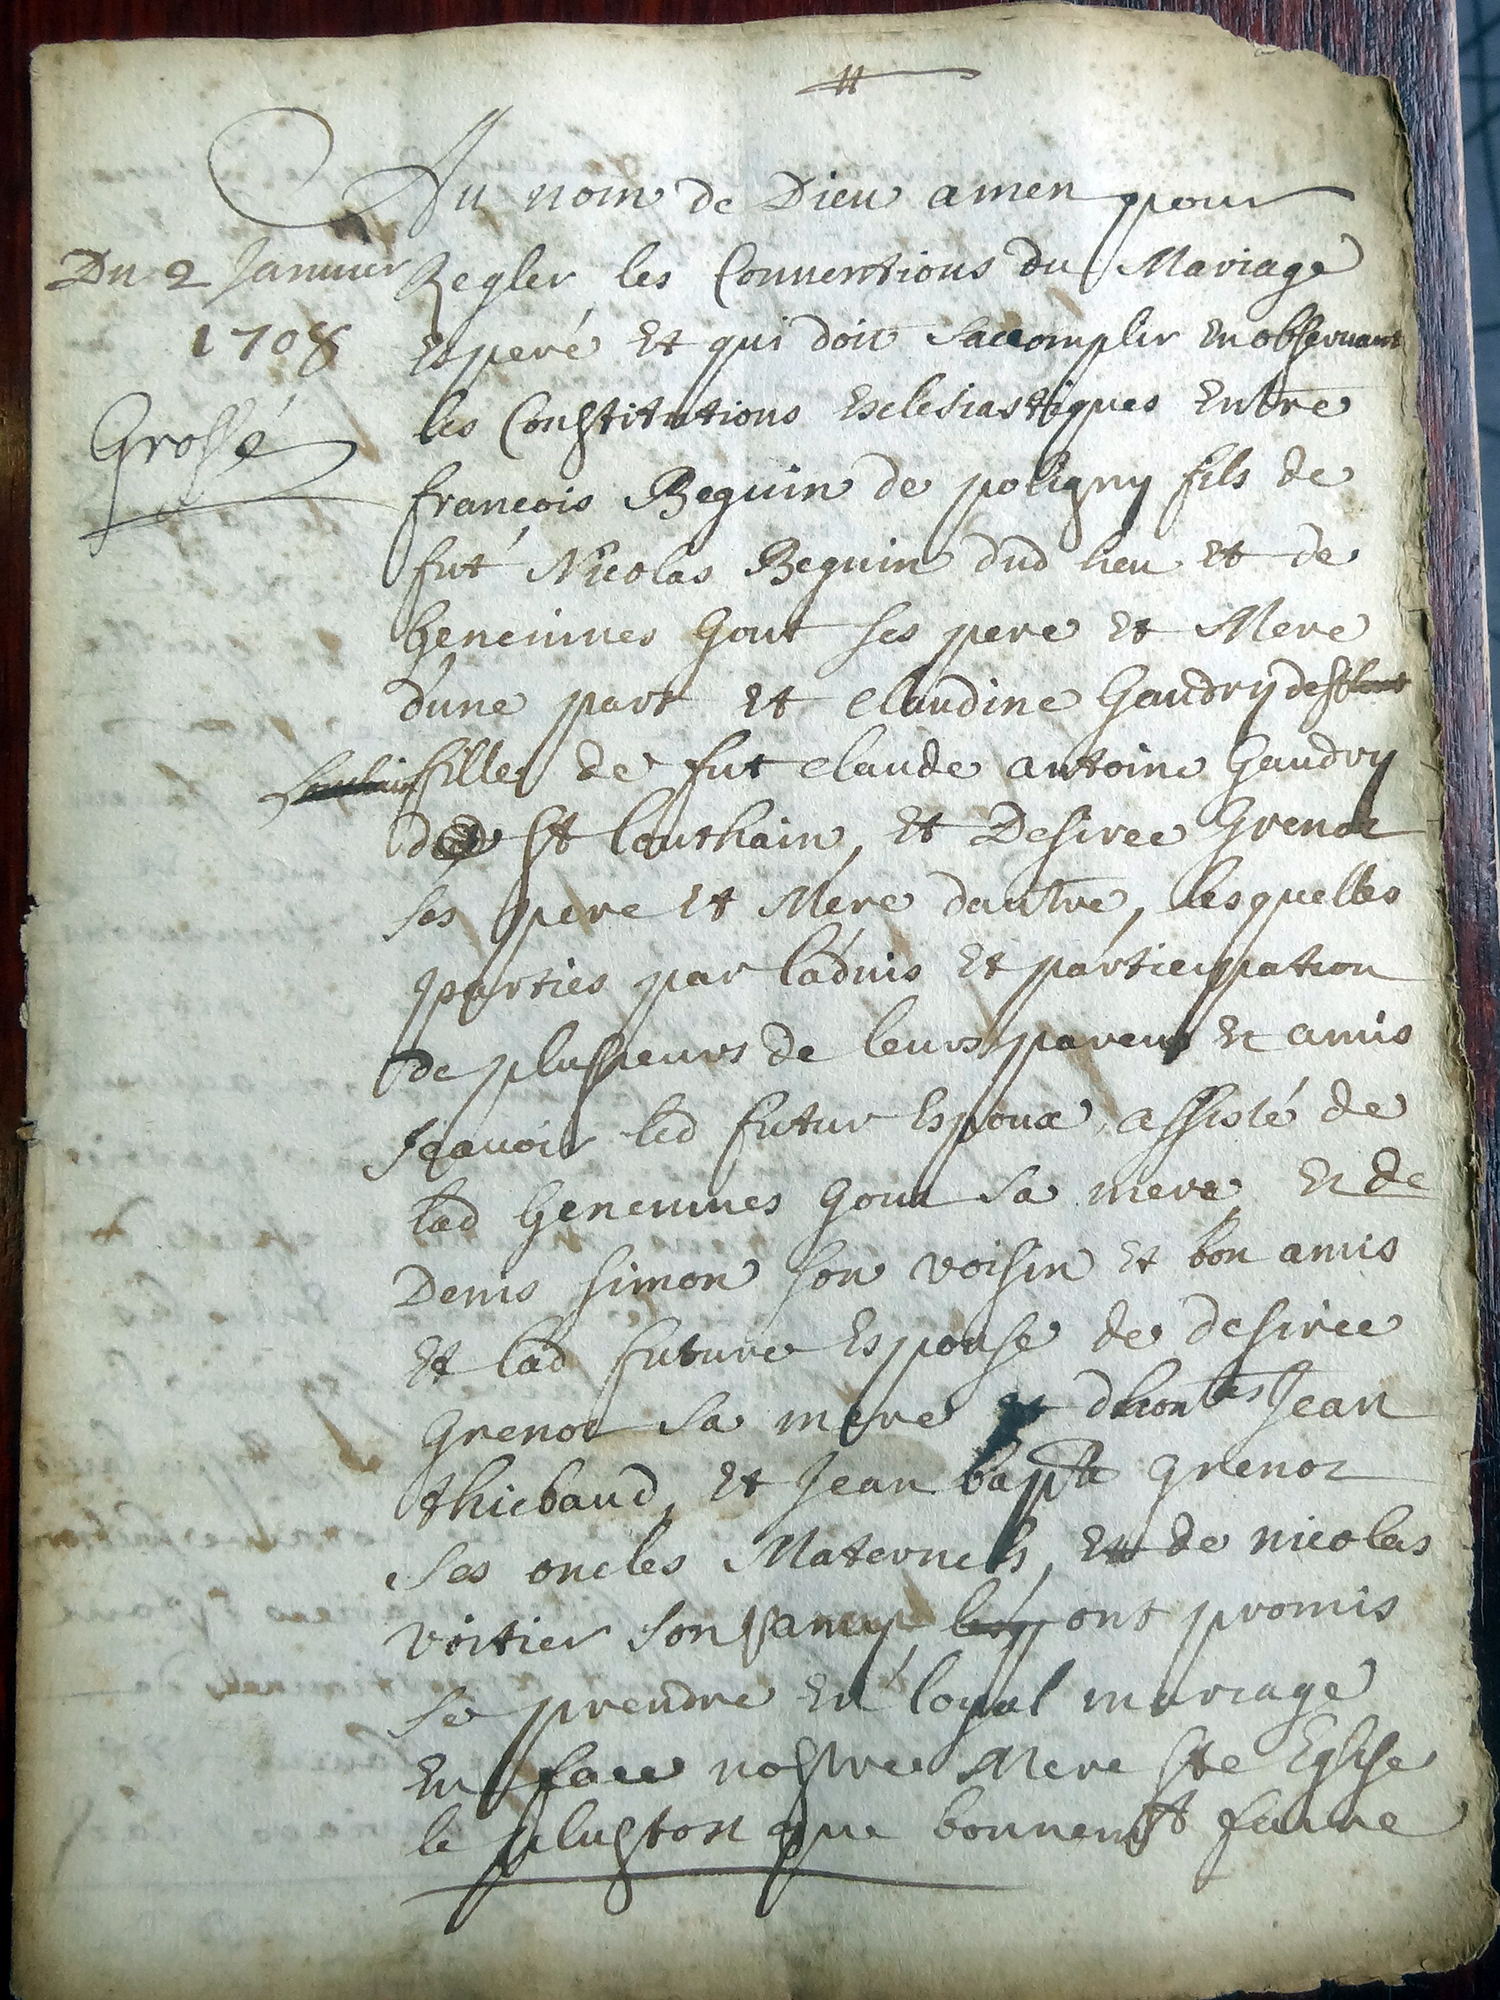 Au nom de Dieu amen pour
Du 2 Janvier
1708
Grossé
Regler les Conventions du Mariage
Esperé Et qui doit Saccomplir En observant
les Constitutions Esclesiastiques Entre
françois Beguin de poligny fils de
fut Nicolas Beguin dud lieu Et de
Gout ses pere Et Mere
d'une part Et Claudine Gaudry de
fille de fut Claude antoine Gaudry
de St Louthain, Et Desiree Grenot
ses pere Et Mere dautre, lesquelles
parties par l'advis Et participation
de plusieurs de leurs parens Et amis
sçavoir led futur Espoux assisté de
lad Gout sa mere Et de
Denis simon son voisin Et bon amis
Et lad future Espouse de desiree
Grenot sa mere Et dhontes Jean
thiebaud, Et Jean bapte grenot
ses oncles Maternels, Et de nicolas
voitier son ont promis
se prendre En loyal mariage
En face nostre Mere Ste Eglise
le plustost que bonnemt faire